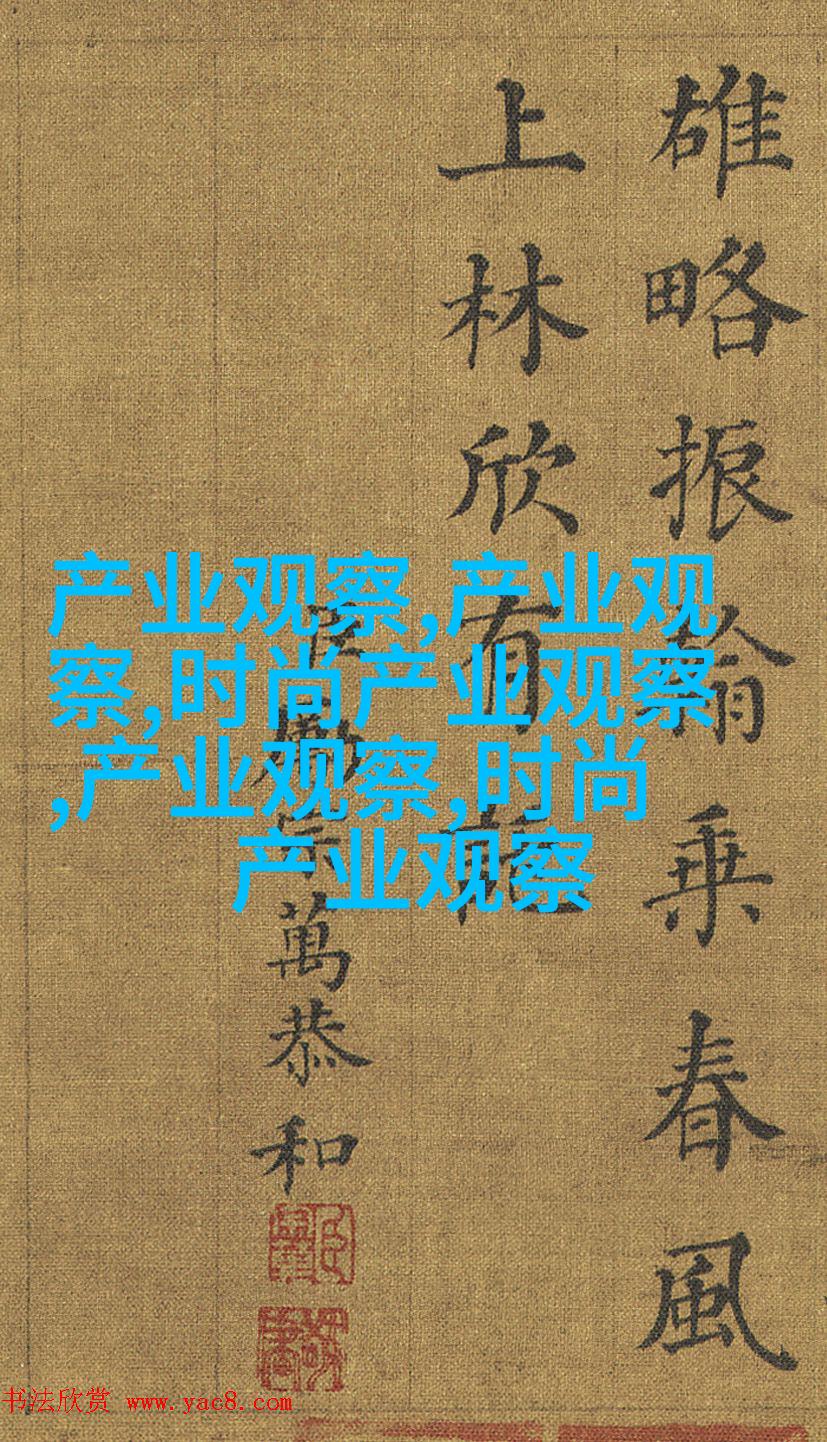 雄略振翰乘春風
上林欣有
臣勵宗萬恭和
产业观察,产业观
察,时尚产业观察
,产业观察,时尚
产业观察
书法欣赏 www.yac8.com